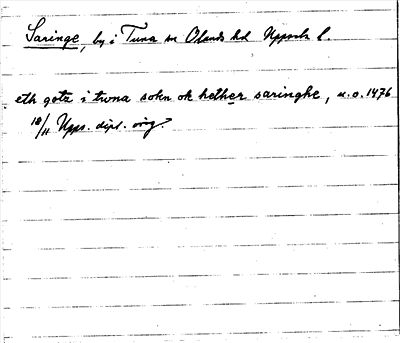 Saringe, by i Tuna sn Olands hd Uppsala l.
eth gotz i twna sokn ok hether saringhe, u.o. 1476
18/11 Upps. dipl. orig.